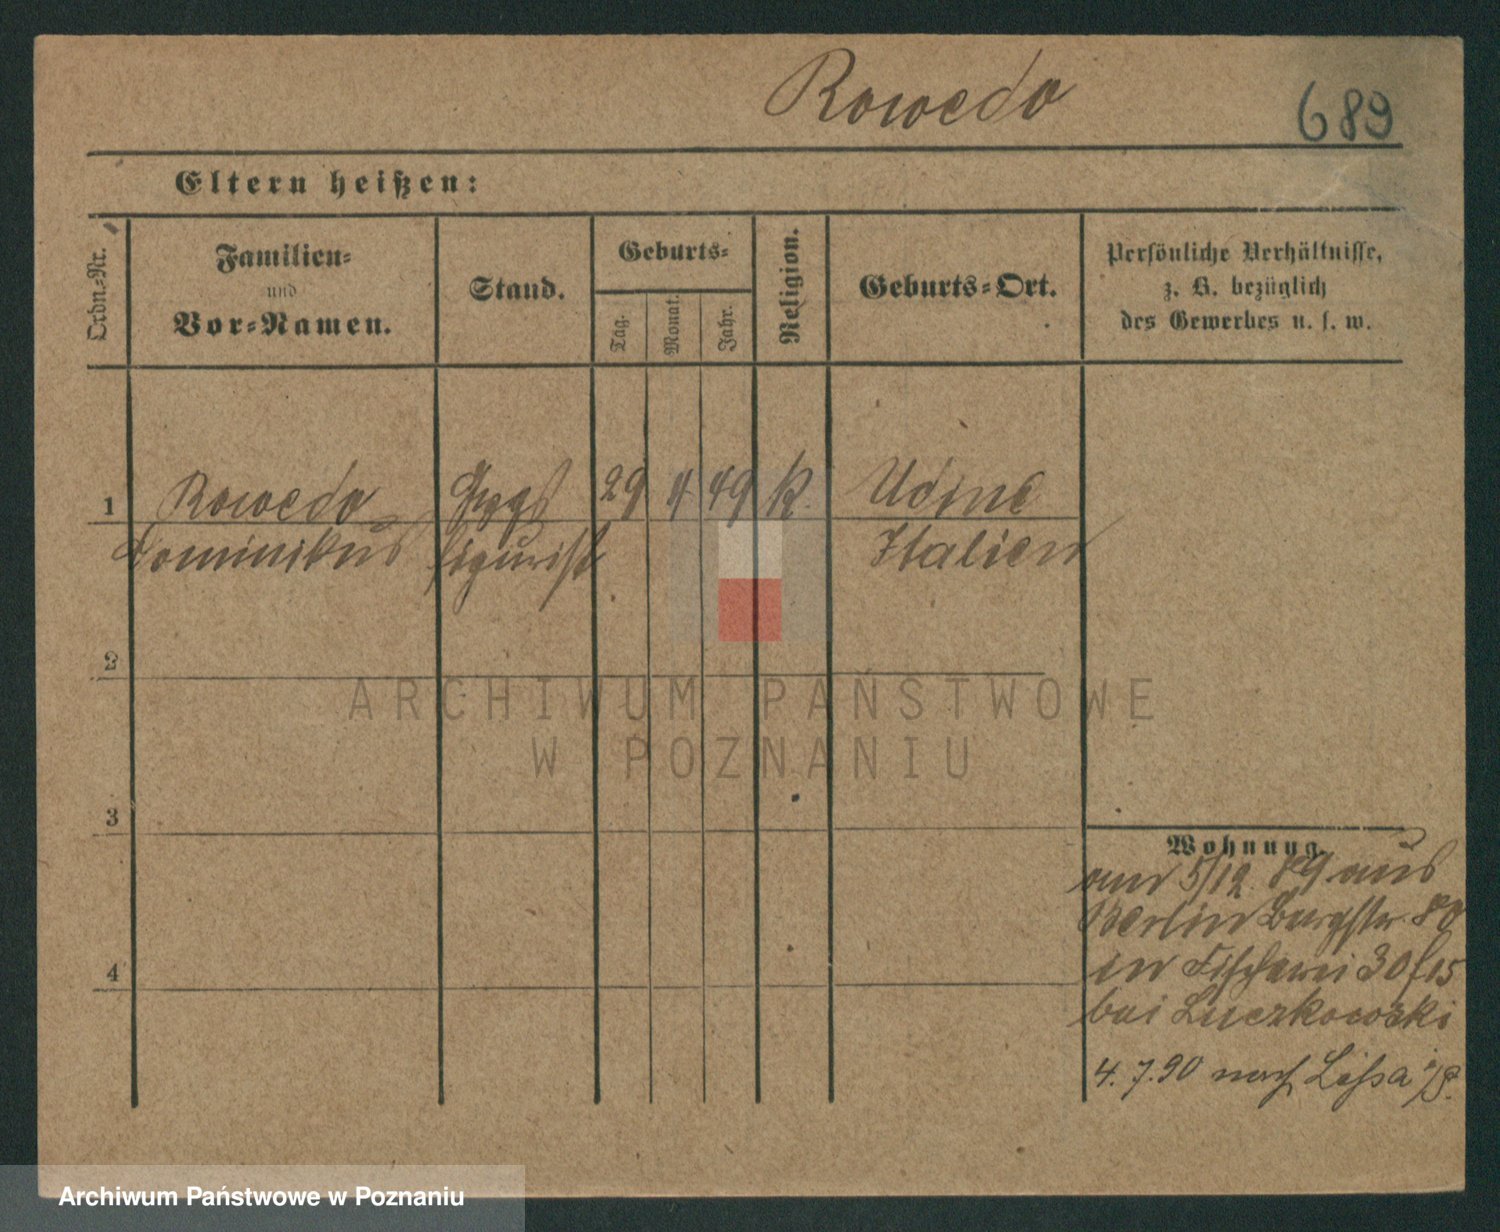 Rowedo
689
Eltern heißen:
Ordn.-Nr.
Familien-
und
Vor-Namen.
Stand.
Geburts-
Tag.
Monat.
Jahr.
Religion.
Geburts-Ort.
Persönliche Verhältnisse,
z. B. bezüglich
des Gewerbes u. s. w.
1 Rowedo Gyps 29 4 49 K. Udine
Dominikus figurist Italien
2
ARCHIWUM PAŃSTWOWE
W POZNANIU
3
Wohnung.
am 5/12. 89 aus
Berlin Bergstr. 80
in Fischerei 30
bei Luczkowski
4. 7. 90 nach Lissa i/P.
4
Archiwum Państwowe w Poznaniu